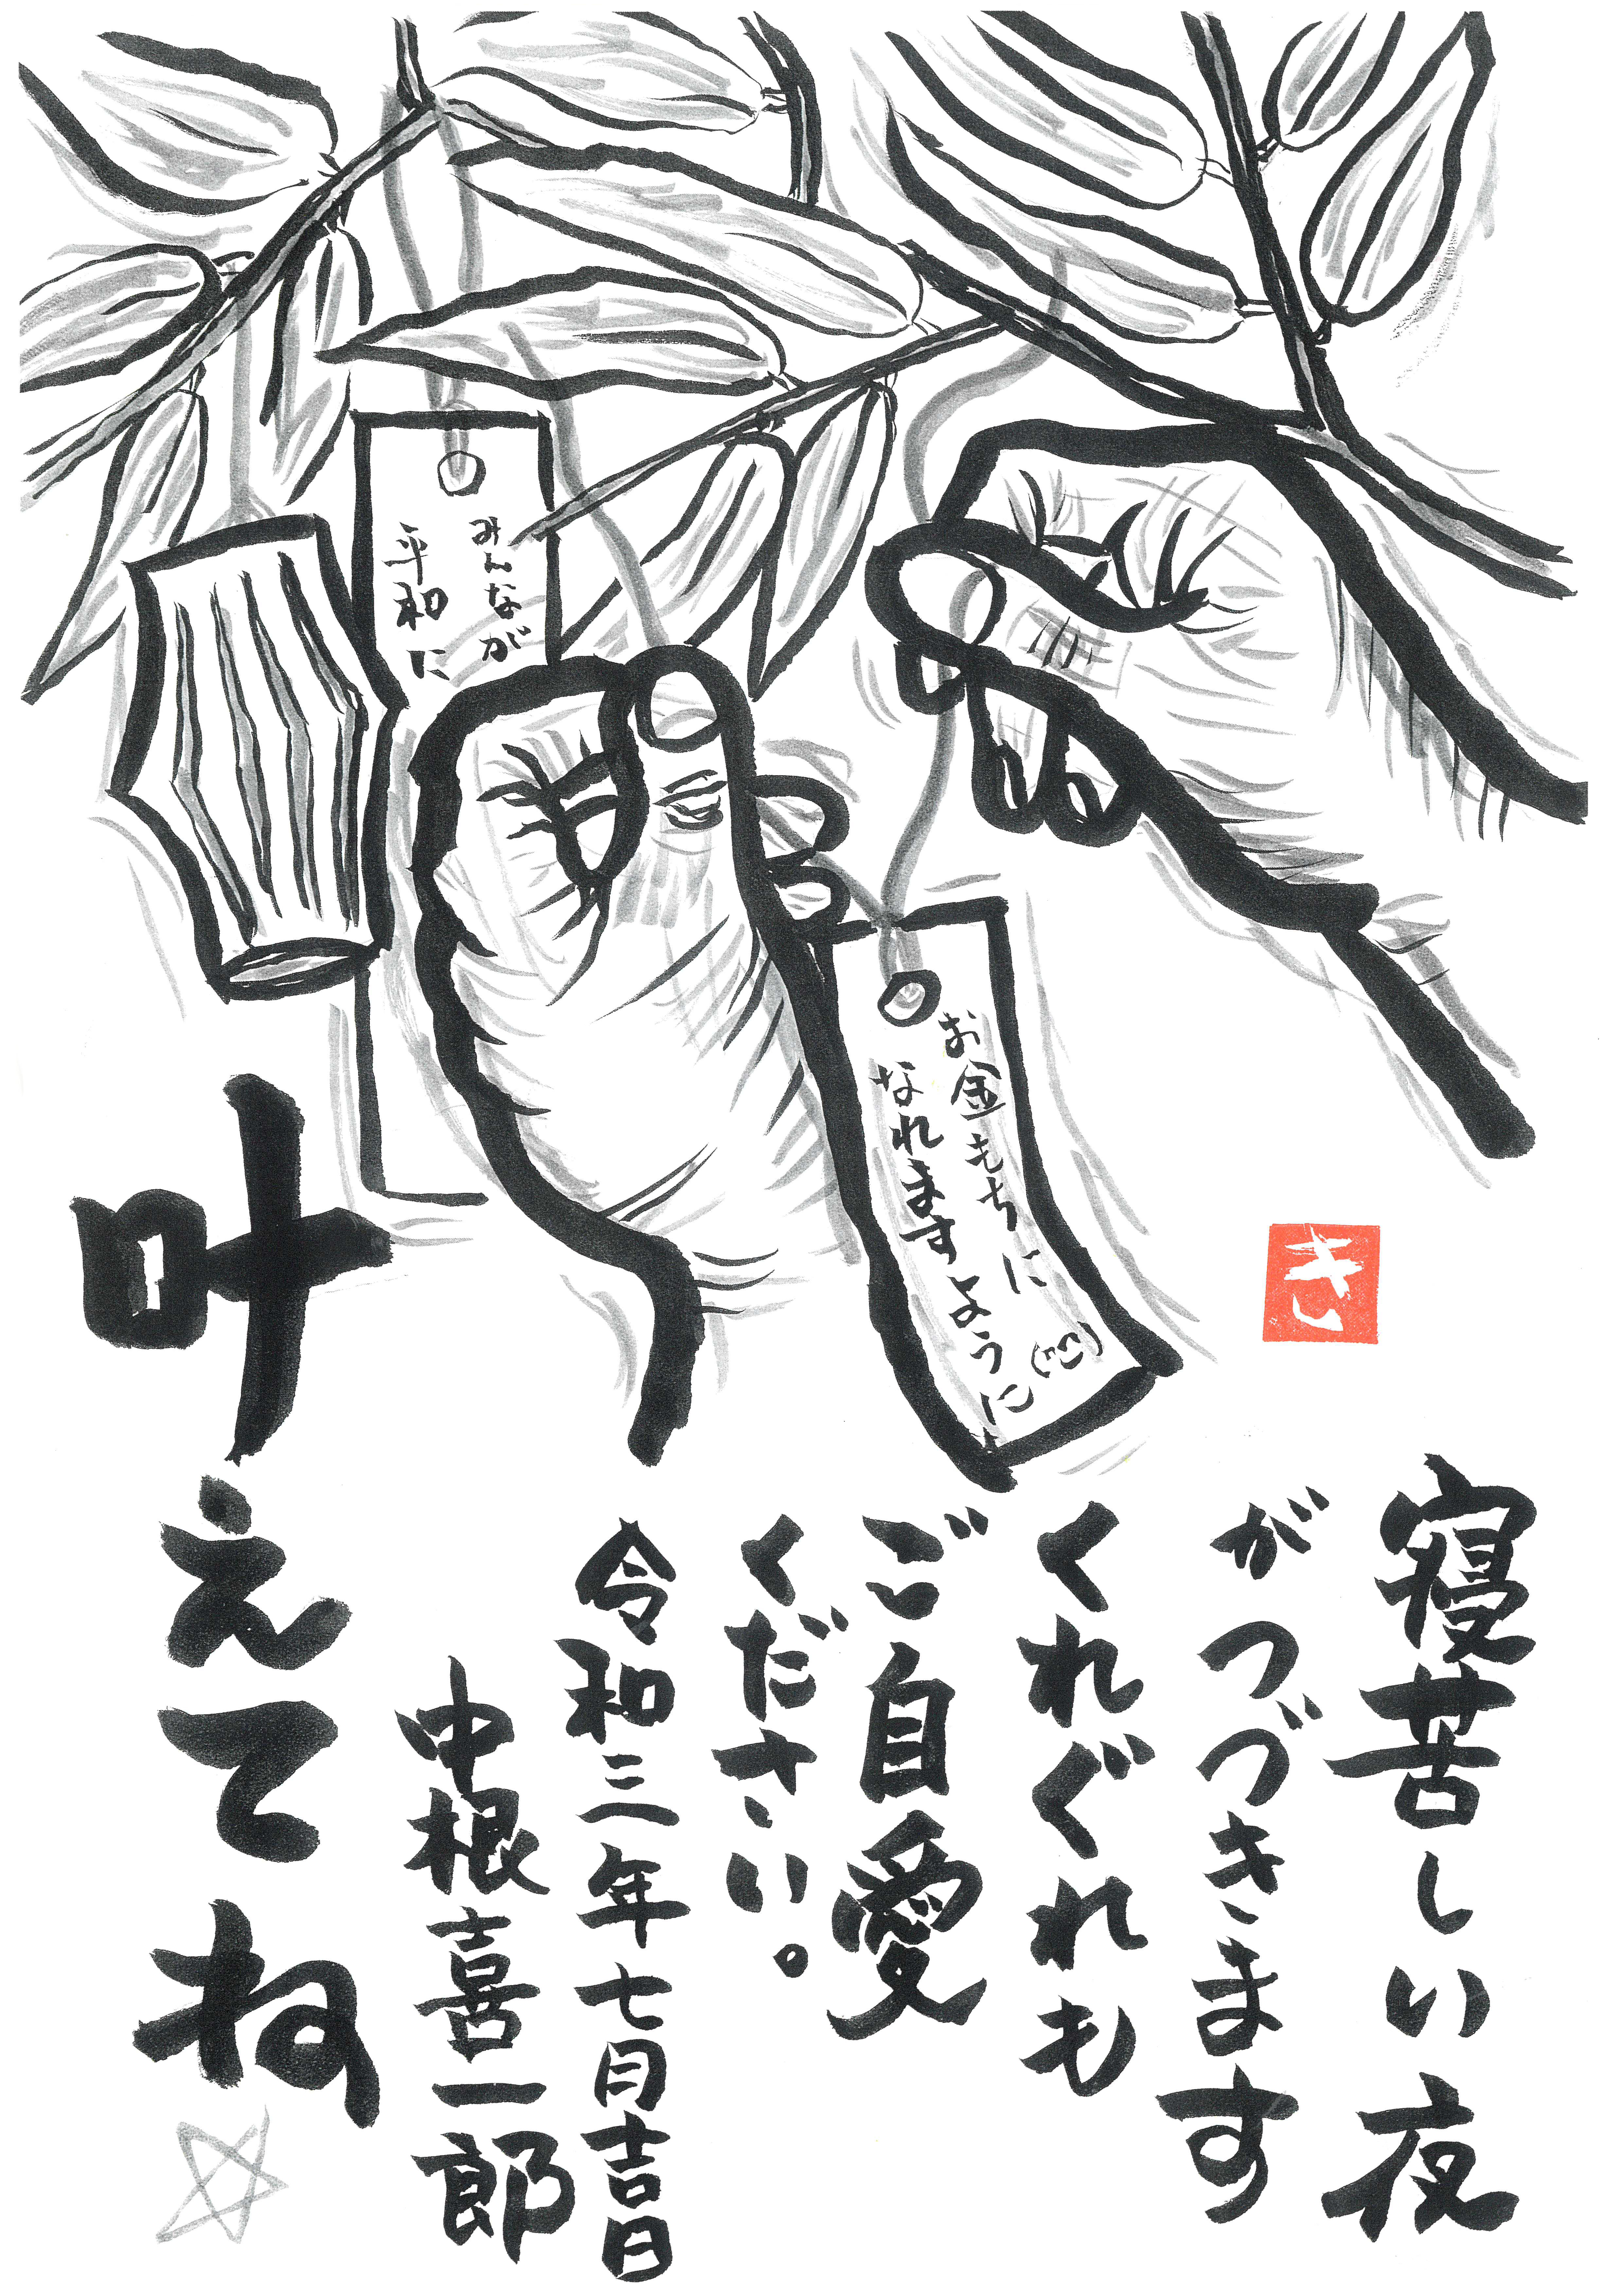 みんなが
平和に
お金もちに
なれますように
き
寝苦しい夜
がつづきます
くれぐれも
ご自愛
ください。
令和三年七月吉日
中根喜一郎
叶えてね